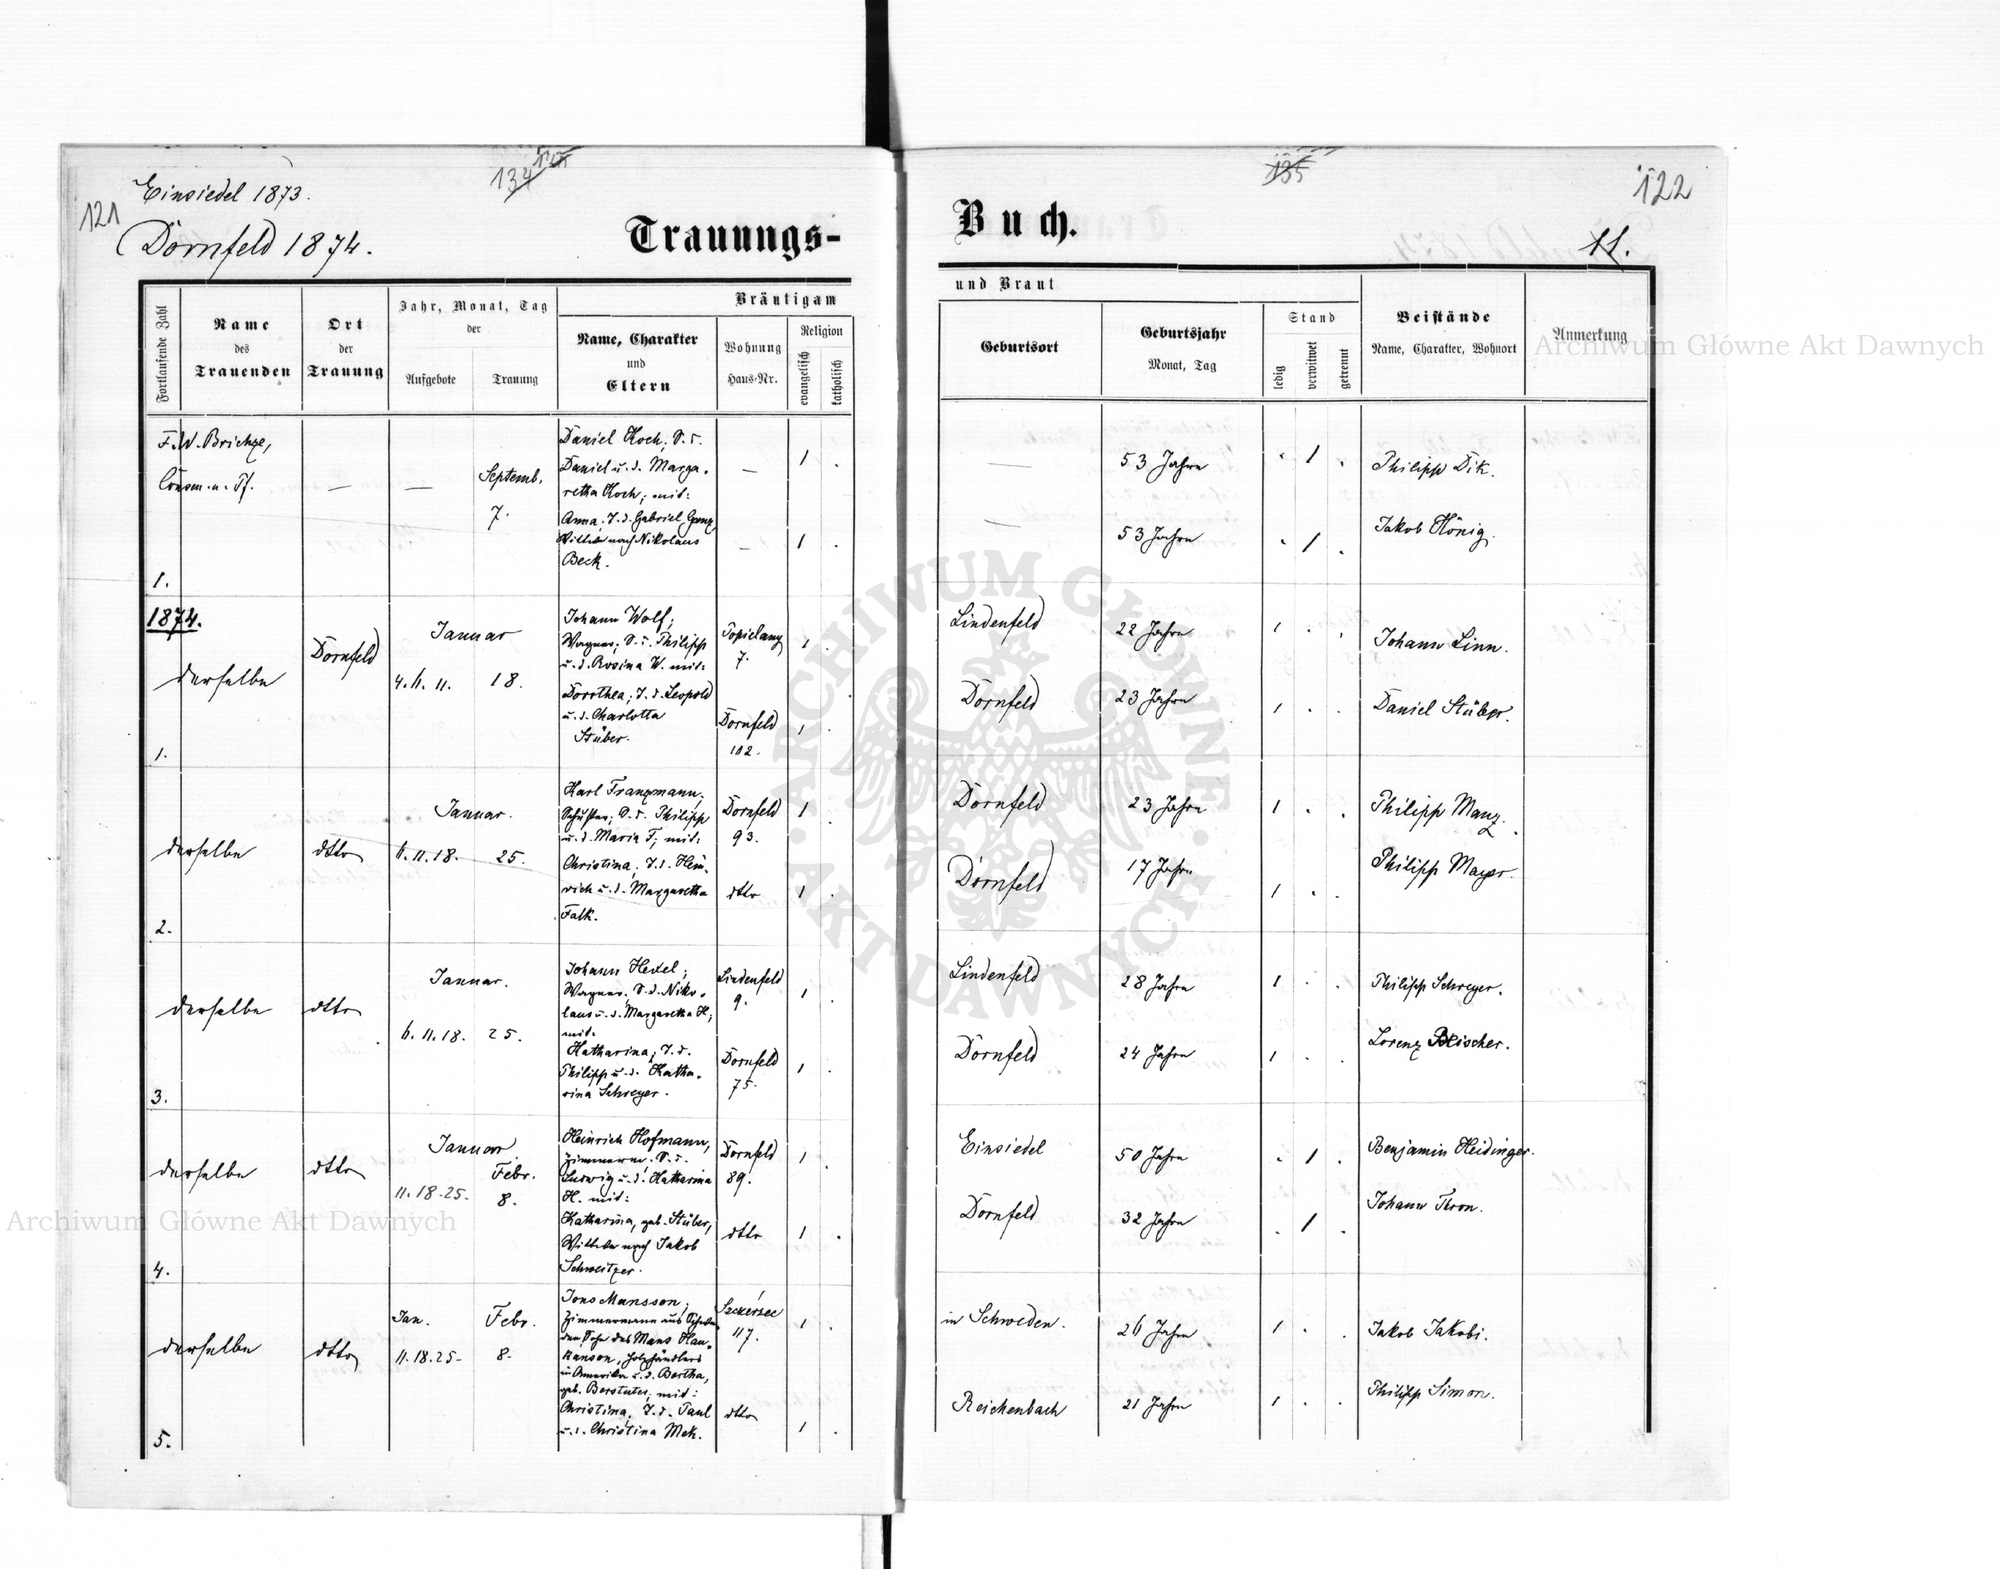 Einsiedel 1873.
134
121
Dornfeld 1874.
Trauungs-
Fortlaufende Zahl
Name
des
Trauenden
Ort
der
Trauung
Jahr, Monat, Tag
der
Aufgebote
Trauung
Bräutigam
Name, Charakter
und
Eltern
Wohnung
Haus-Nr.
Religion
evangelisch
katholisch
F. W. Brichze,
Consen. u. Pf.
—
—
Septemb.
7.
Daniel Koch, S. d.
Daniel u. d. Marga-
retha Koch; mit:
Anna, T. d. Gabriel Ganz
Wittwe nach Nikolaus
Beck.
—
1
—
1
1.
1874.
derselbe
Dornfeld
Januar
4. 6. 11.
18.
Johann Wolf,
Wagner, S. d. Philipp
u. d. Rosina W. mit:
Dorothea, T. d. Leopold
u. d. Charlotta
Stüber.
7.
1
Dornfeld
102.
1
1.
derselbe
dtto
Januar.
6. 11. 18.
25.
Karl Franzmann,
Schuster, S. d. Philipp
u. d. Maria F., mit:
Christina, T. d. Hein-
rich u. d. Margaretha
Falk.
Dornfeld
93.
1
dtto
1
2.
derselbe
dtto
Januar.
6. 11. 18.
25.
Johann Hexel,
Wagner, S. d. Niko-
laus u. d. Margaretha H;
mit:
Katharina, T. d.
Philipp u. d. Katha-
rina Schreyer.
Lindenfeld
9.
1
Dornfeld
75.
1
3.
derselbe
dtto
Januar.
11. 18. 25.
Febr.
8.
Heinrich Hofmann,
Zimmerm. S. d.
Ludwig u. d. Katharina
H. mit:
Katharina, geb. Stüber,
Wittwe nach Jakob
Schweitzer.
Dornfeld
89.
1
dtto
1
4.
derselbe
dtto
Jan.
11. 18. 25.
Febr.
8.
Jons Mansson,
Zimmermann aus Schwe-
den, Sohn des Mans Han-
kanson, Holzhändlers
in Amerika u. d. Bertha,
mit:
Christina, T. d. Paul
u. d. Christina Mek.
Szczerzec
117.
1
dtto
1
5.
135
122
Buch.
11.
und Braut
Geburtsort
Geburtsjahr
Monat, Tag
Stand
ledig
verwitwet
getrennt
Beistände
Name, Charakter, Wohnort
Anmerkung
—
53 Jahre
1
Philipp Dik.
—
53 Jahre
1
Jakob König.
Lindenfeld
22 Jahre
1
Johann Linn.
Dornfeld
23 Jahre
1
Daniel Stüber.
Dornfeld
23 Jahre
1
Philipp Manz.
Dornfeld
17 Jahre
1
Philipp Mayer.
Lindenfeld
28 Jahre
1
Philipp Schreyer.
Dornfeld
24 Jahre
1
Lorenz
Einsiedel
50 Jahre
1
Benjamin Heidinger.
Dornfeld
32 Jahre
1
Johann Thron.
in Schweden.
26 Jahre
1
Jakob Jakobi.
Reichenbach
21 Jahre
1
Philipp Simon.
Archiwum Główne Akt Dawnych
Archiwum Główne Akt Dawnych
ARCHIWUM GŁÓWNE
AKT DAWNYCH